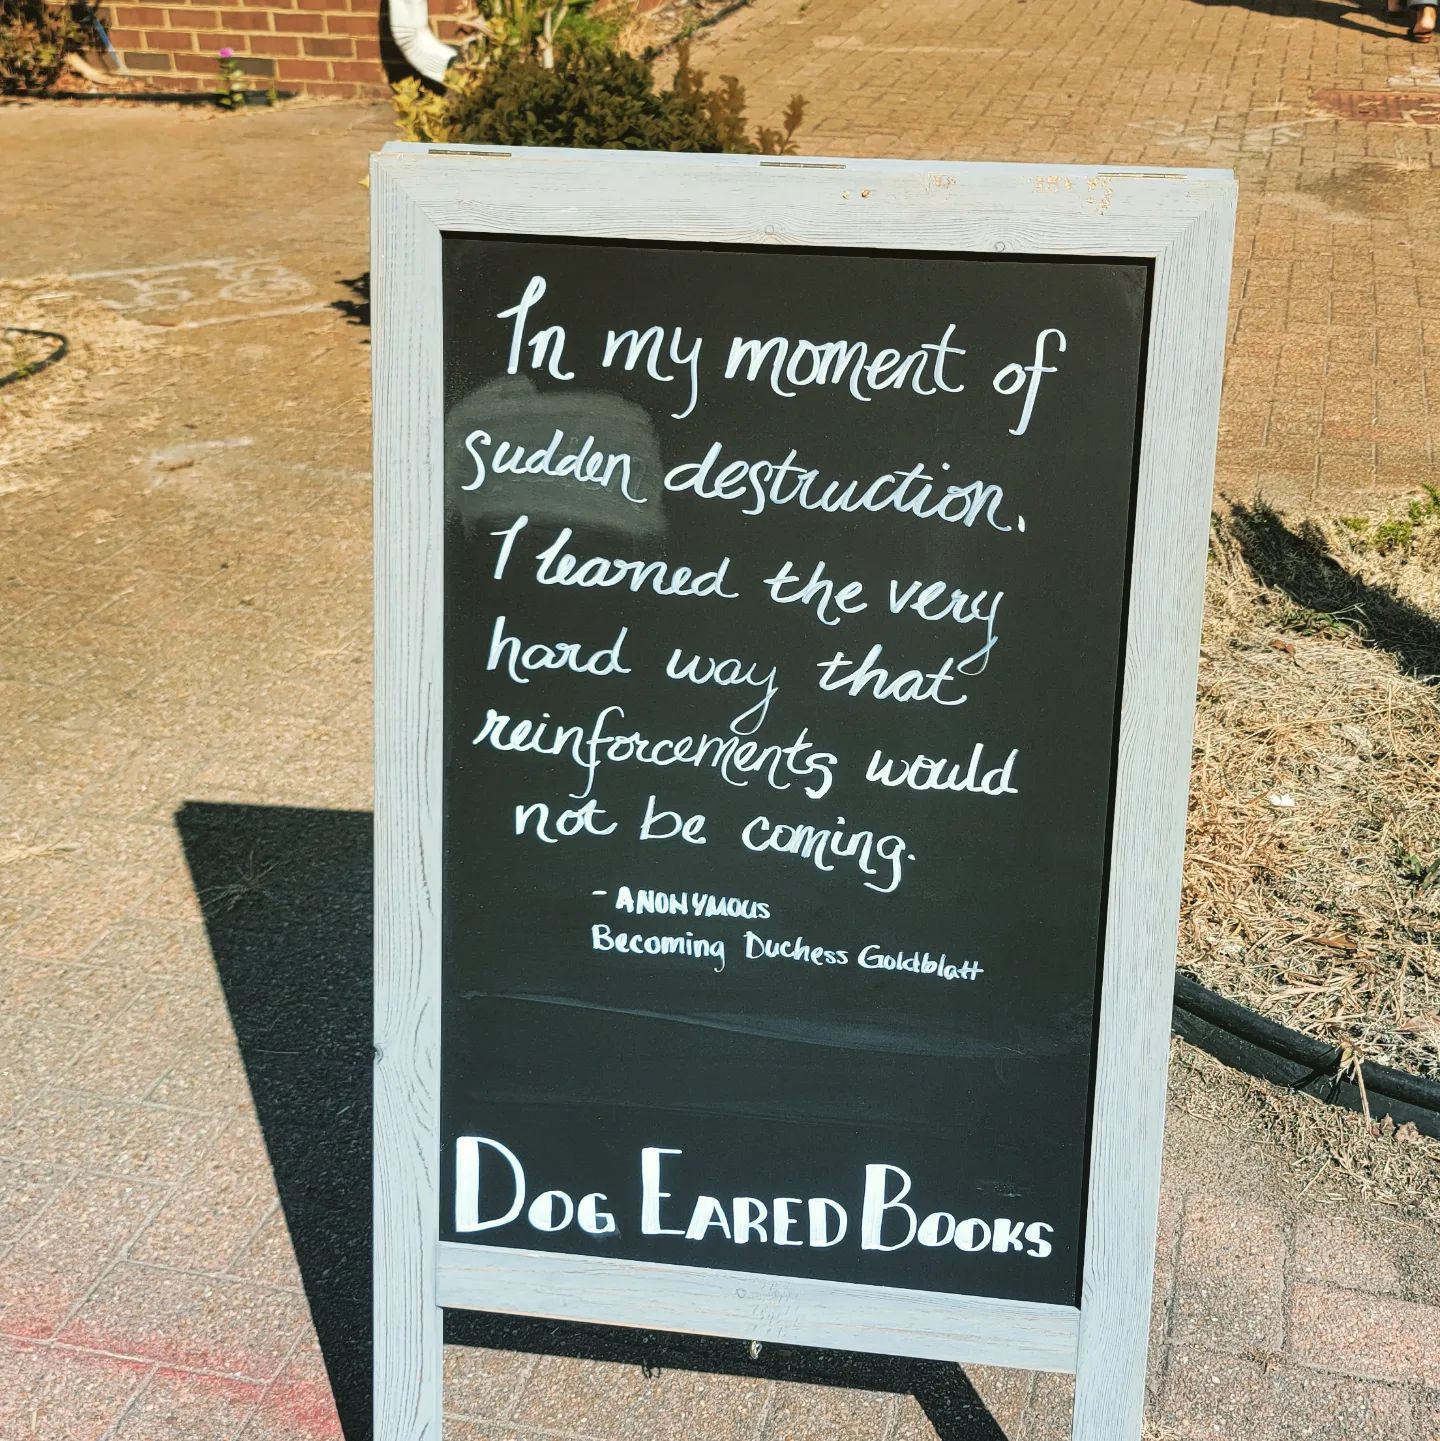 In my moment of
sudden destruction.
I learned the very
hard way that
reinforcements would
not be coming.
- ANONYMOUS
Becoming Duchess Goldblatt
DOG EARED BOOKS